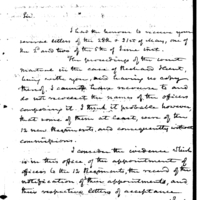 Sir,
I had the honour to receive your
several letters of the 28th & 31st of May, one of
the 2nd and two of the 5th of June inst.
The proceedings of the court
martial in the case of Richard Hunt,
being with you, and having no copy
thereof, I cannot have recourse to and
do not recollect the names of the officers
composing it. I think it probable however
that some of them at least, were of the
12 new Regiments, and consequently without
commissions.
I consider the evidence which
is in this office of the appointment of
officers to the 12 Regiments, the record of the
notification of their appointments, and
their respective letters of acceptance